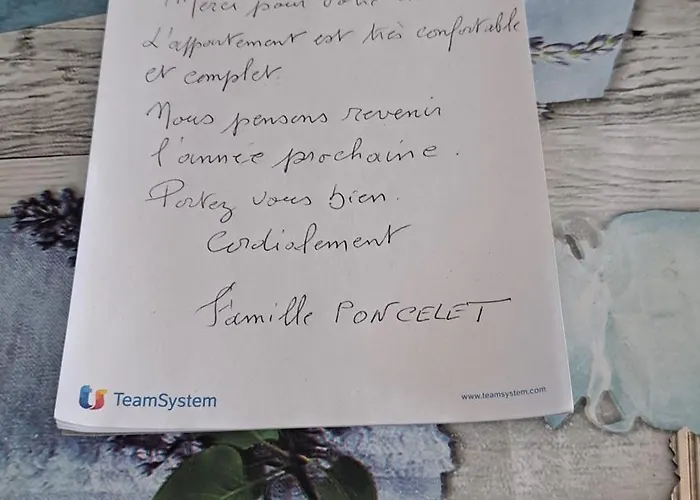 Merci pour votre
L'appartement est très confortable
et complet.
Nous pensons revenir
l'année prochaine.
Portez vous bien.
Cordialement
Famille PONCELET
TeamSystem
www.teamsystem.com